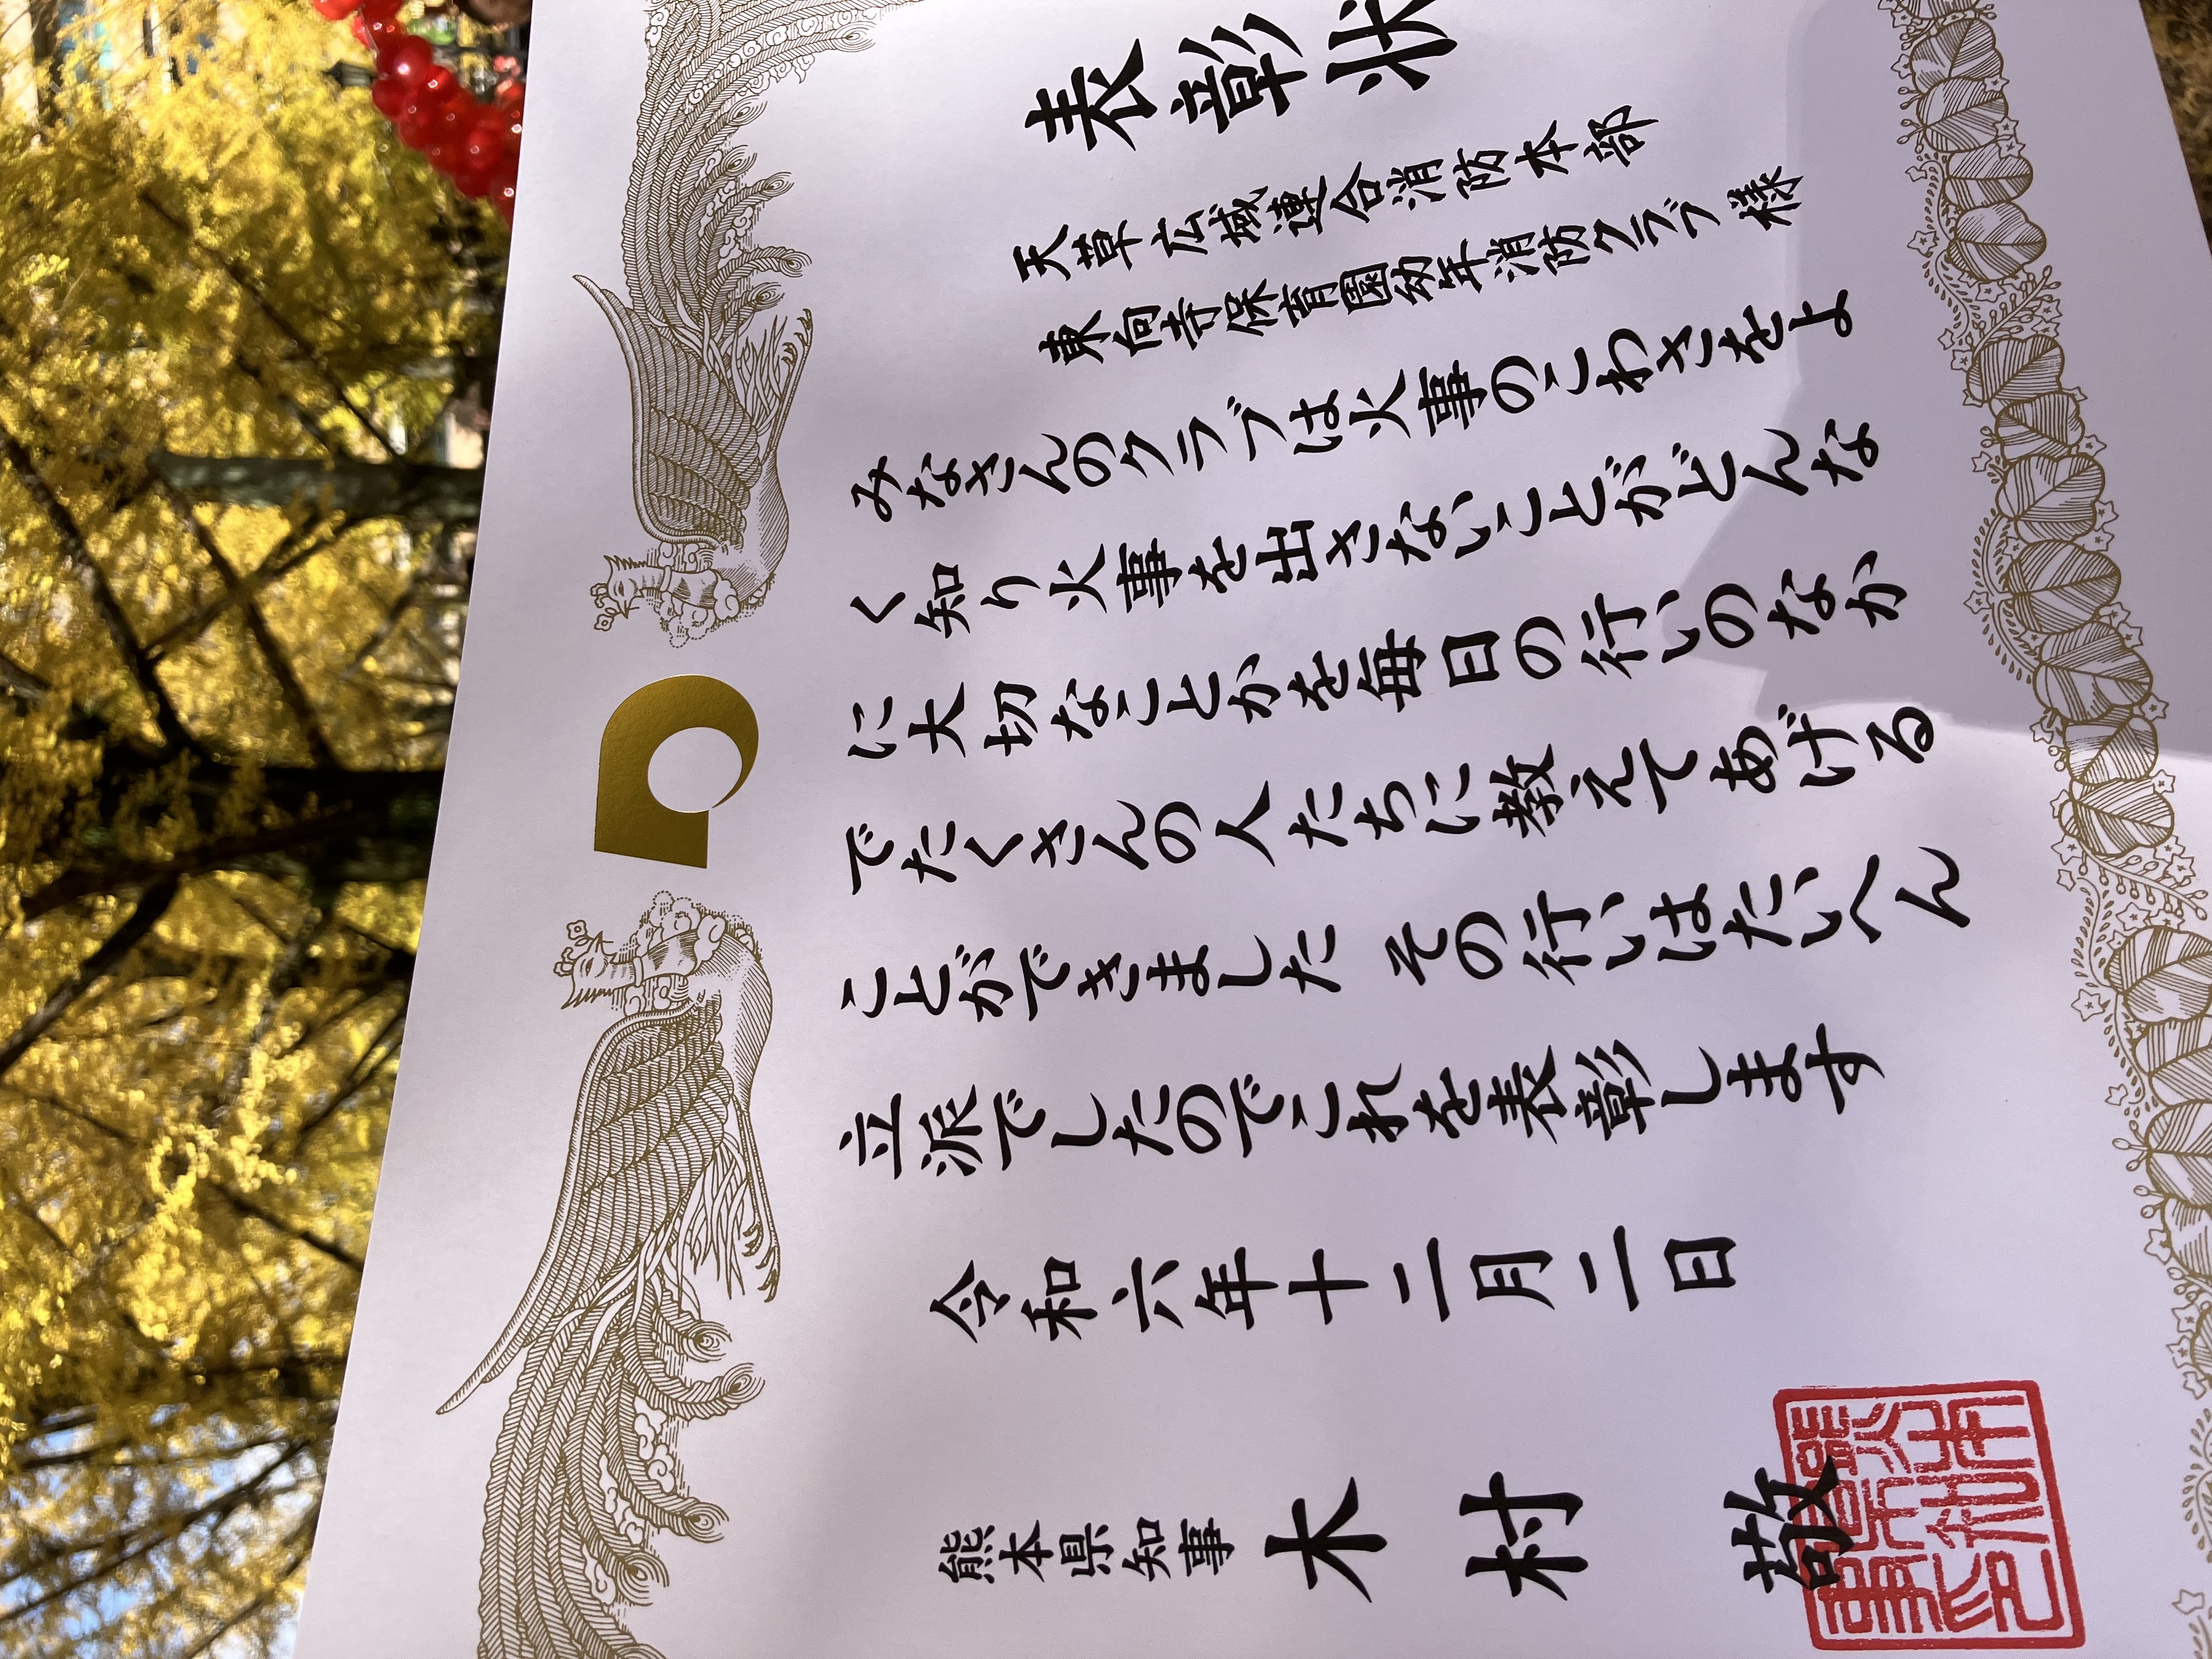 表彰状
天草広域連合消防本部
東向寺保育園幼年消防クラブ 様
みなさんのクラブは火事のこわさをよ
く知り火事を出さないことがどんな
に大切なことかを毎日の行いのなか
でたくさんの人たちに教えてあげる
ことができました その行いはたいへん
立派でしたのでこれを表彰します
令和六年十二月二日
熊本県知事 木村 敬